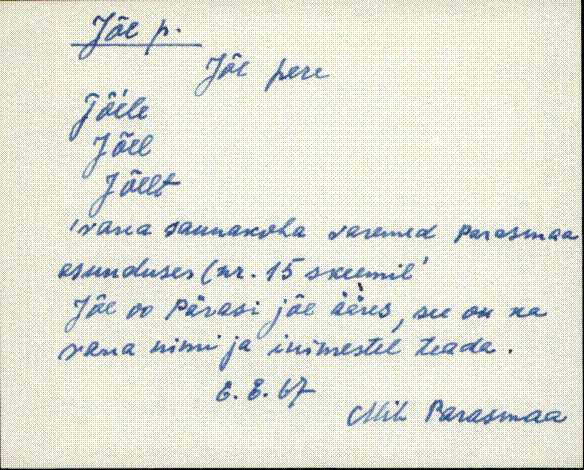 Jõe p.
Jõe pere
Jõele
Jõel
Jõelt
'vana saunakoha varemed Parasmaa
asunduses (nr. 15 skeemil'
Jõe oo Pärasi jõe ääres, see on ka
vana nimi ja inimestel teada.
6. 8. 67
Mih Parasmaa